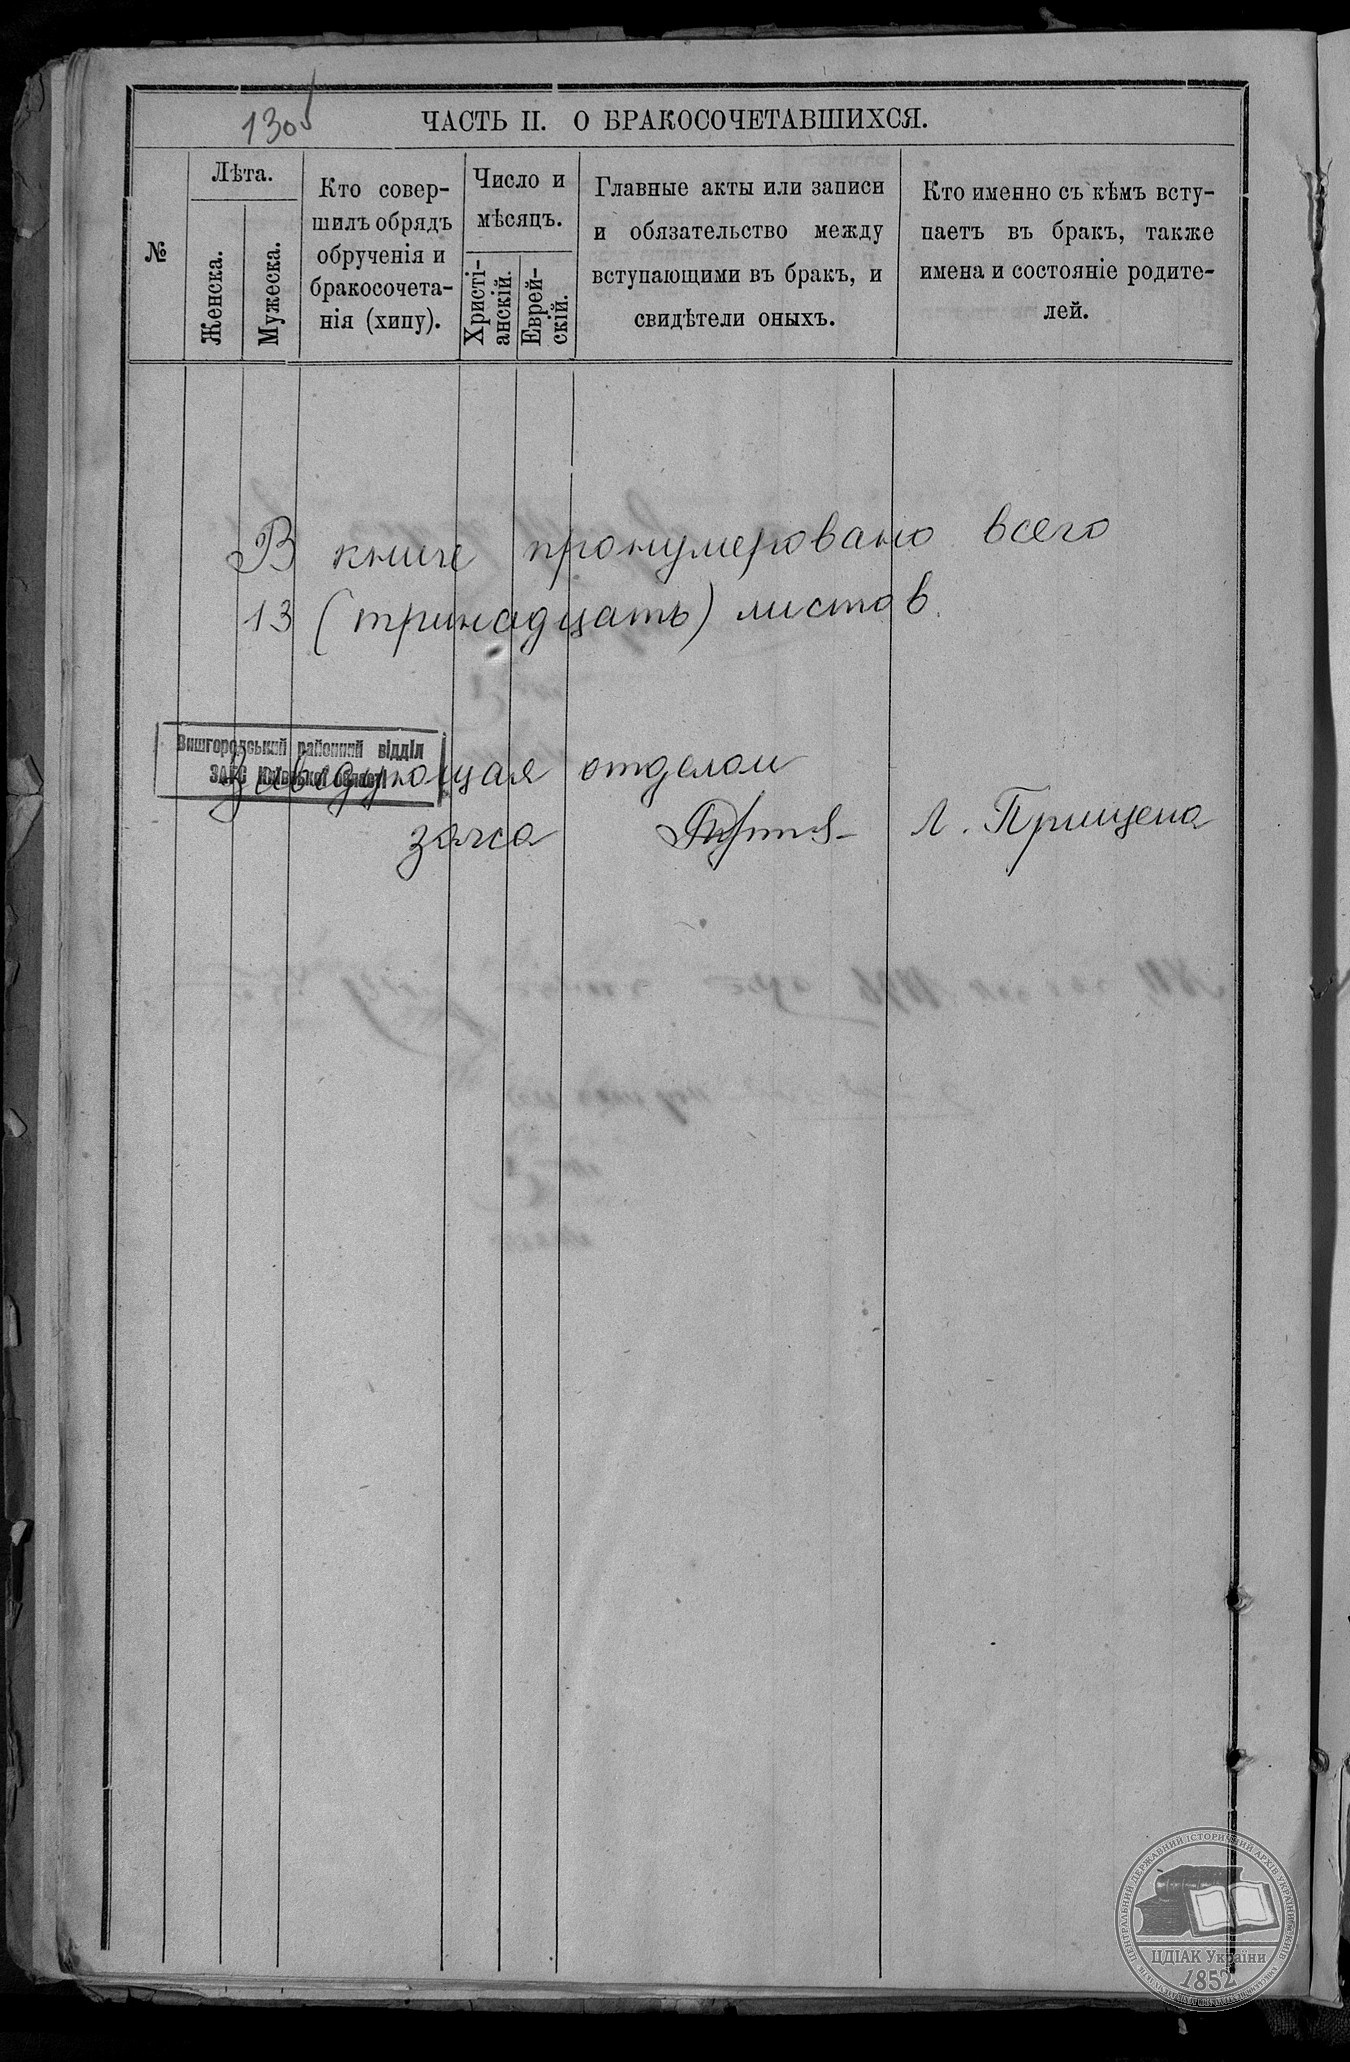 130
ЧАСТЬ II. О БРАКОСОЧЕТАВШИХСЯ.
№
Лѣта.
Женска.
Мужеска.
Кто совер-
шилъ обрядъ
обрученія и
бракосочета-
нія (хипу).
Число и
мѣсяцъ.
Христі-
анскій.
Еврей-
скій.
Главные акты или записи
и обязательство между
вступающими въ бракъ, и
свидѣтели оныхъ.
Кто именно съ кѣмъ всту-
паетъ въ бракъ, также
имена и состояніе родите-
лей.
В книге пронумеровано всего
13 (тринадцать) листов.
Вишгородський районний відділ
ЗАГС Київської області
Заведующая отделом
загса Л. Прищепа
ЦЕНТРАЛЬНИЙ ДЕРЖАВНИЙ ІСТОРИЧНИЙ АРХІВ УКРАЇНИ
ЦДІАК України
1852